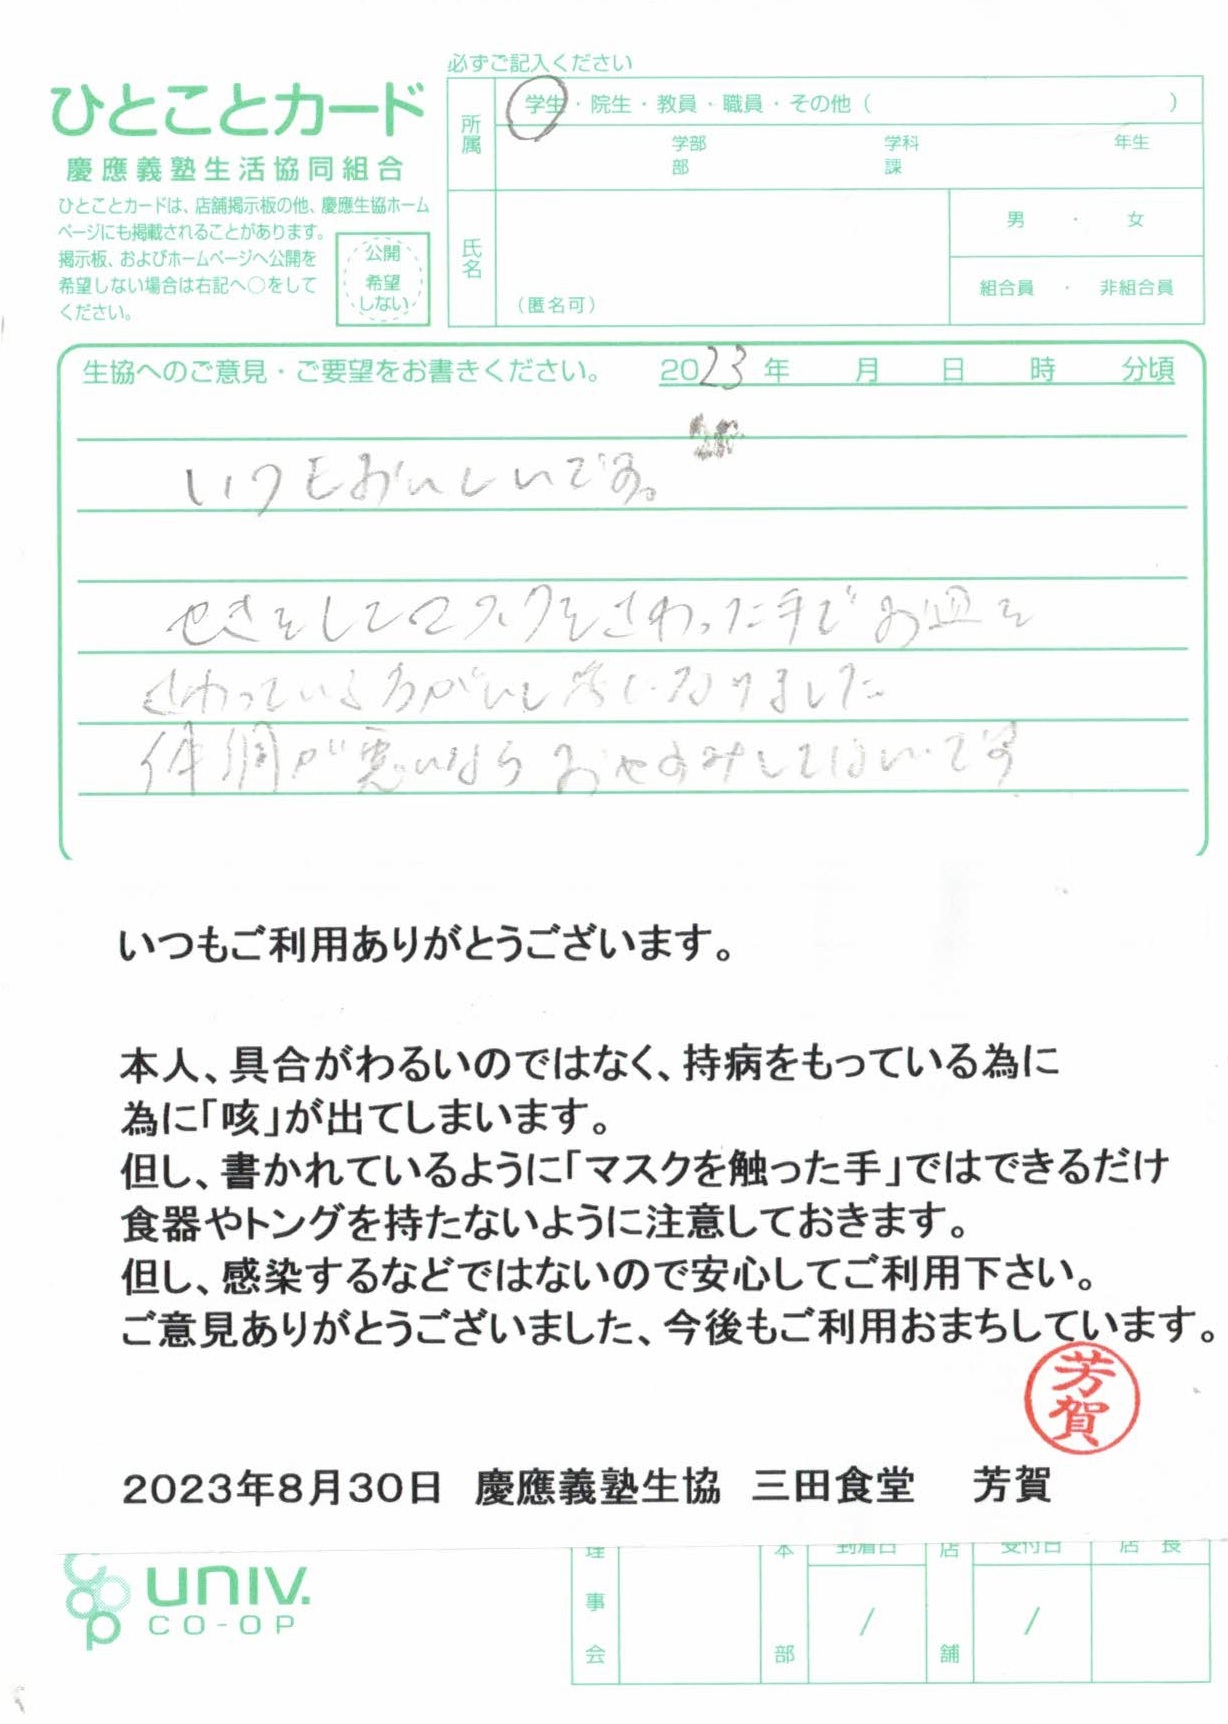 必ずご記入ください
ひとことカード
慶應義塾生活協同組合
ひとことカードは、店舗掲示板の他、慶應生協ホーム
ページにも掲載されることがあります。
掲示板、およびホームページへ公開を
希望しない場合は右記へ○をして
ください。
公開
希望
しない
所属
学生・院生・教員・職員・その他（　　　）
学部 学科 年生
部 課
氏名
（匿名可）
男・女
組合員・非組合員
生協へのご意見・ご要望をお書きください。 2023年 月 日 時 分頃
いつもおいしいです。
せきをしてマスクをさわった手でお皿を
さわっている方がいし気になりました
体調が悪いならおやすみしてほしいです
いつもご利用ありがとうございます。
本人、具合がわるいのではなく、持病をもっている為に
為に「咳」が出てしまいます。
但し、書かれているように「マスクを触った手」ではできるだけ
食器やトングを持たないように注意しておきます。
但し、感染するなどではないので安心してご利用下さい。
ご意見ありがとうございました、今後もご利用おまちしています。
芳賀
2023年8月30日 慶應義塾生協 三田食堂 芳賀
UNIV.
CO-OP
理事会
本部
到着日
/
店舗
受付日
/
店長